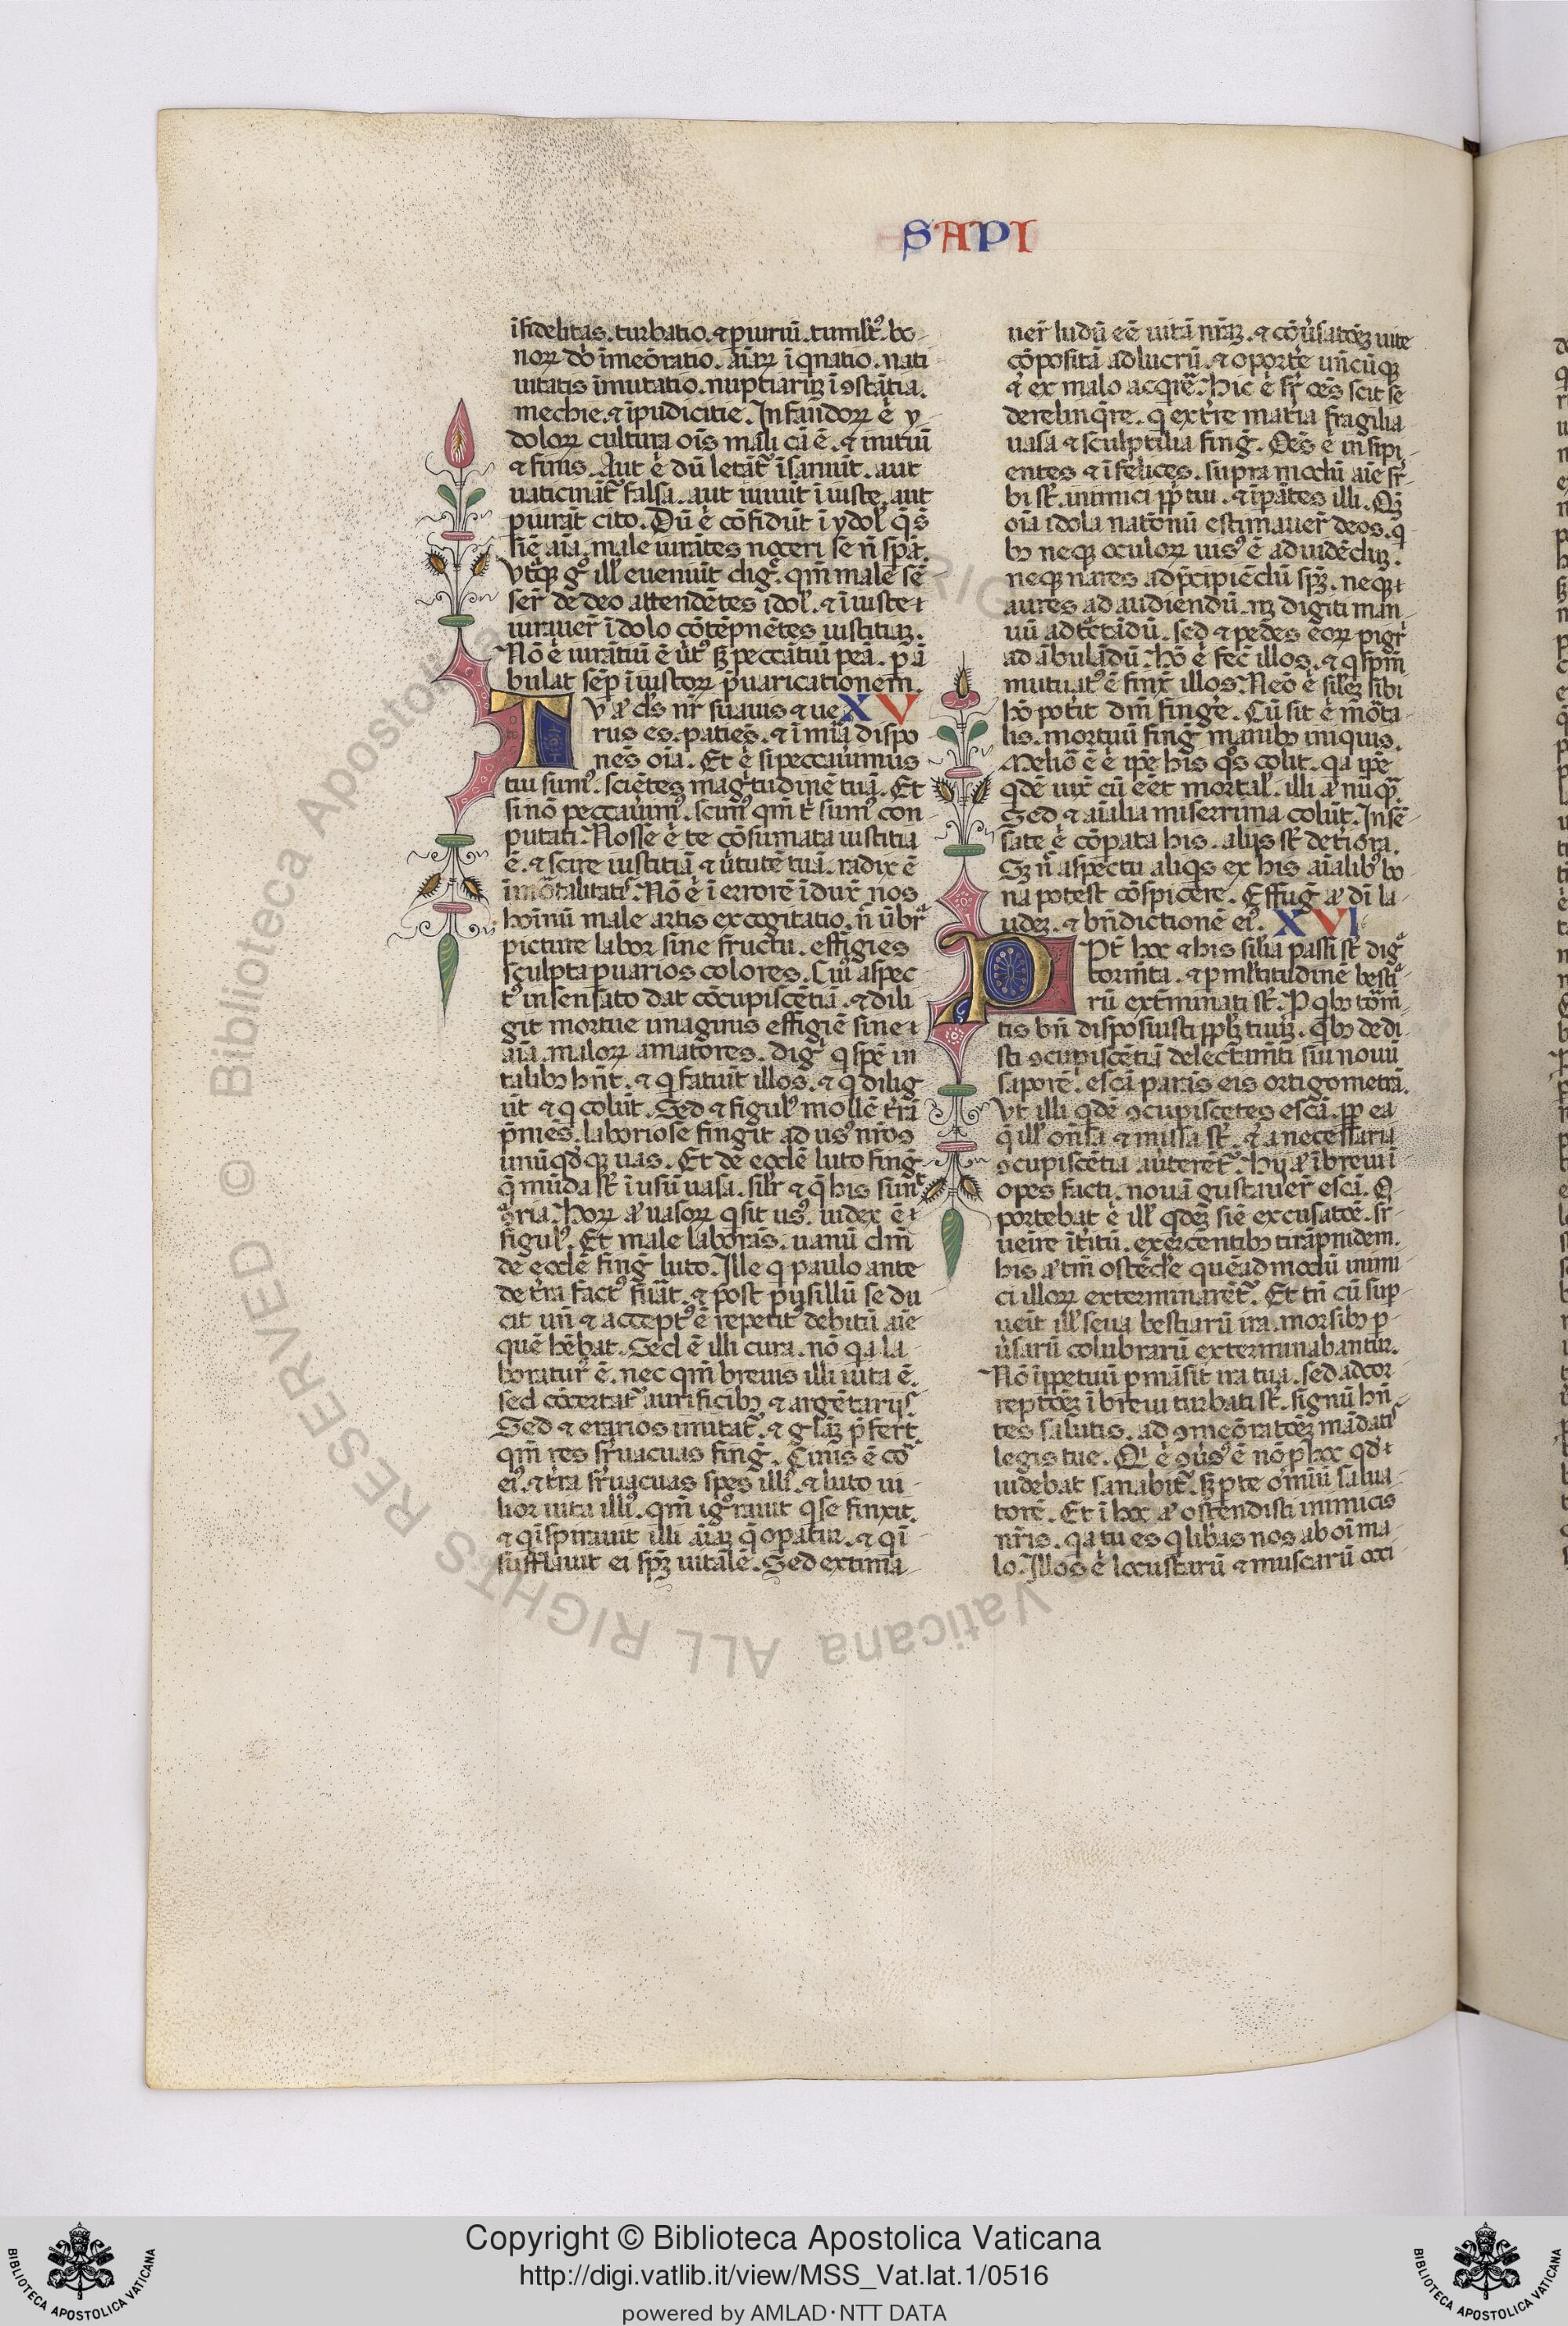 SAPI
ĩfidelitas. turbatio. ⁊ ꝑiuriũ. tumĺtꝰ. bo-
noꝝ. dõ ĩmeõratio. aĩaꝝ ĩqnatio. nati
uitatis ĩmutatio. nuptiarũ ĩꝯstãtia.
mechie. ⁊ ĩpudicitie. Infandoꝝ ė y-
doloꝝ cultura oĩs mali cã ē. ⁊ initiũ
⁊ finis. Aut ė dũ letãt᷑ ĩsaniũt. aut
uaticinãt᷑ falsa. aut uiuũt ĩiuste. aut
ꝑiurãt cito. Dũ ė cõfidũt ĩ ydoĺ q̃ s̃
siñ aĩa. male iurãtes noceri se ñ spãt.
Vtq̃ꝫ gͦ illꝭ eueniũt digͤ. qm̃ male sẽ
ser̃ de deo attendẽtes idoĺ. ⁊ ĩiuste
iurauer̃ ĩ dolo cõtẽpnẽtes iustitiaꝫ.
Nõ ė iuratiũ ē ũtꝰ sꝫ peccãtiũ pea. ꝑã
bulat sẽꝑ ĩiustoꝝ p̃uaricationem.
TV aͭ dš nr̃ suauis ⁊ ue XV
rus es. patiẽs. ⁊ ĩ mĩa dispo
nẽs oĩa. Et ė si peccauimus
tui sumꝰ. sciẽtes magͥtudinẽ tuã. Et
si nõ peccauimꝰ. scimꝰ qm̃ t̃ sumꝰ con-
putati. Nosse ė te cõsumata iustitia
ē. ⁊ scire iustitiã ⁊ ũtutẽ tuã. radix ē
ĩmõtalitatꝭ. Nõ ė ĩ errorẽ ĩdux̃ nos
hoĩnũ male artis excogitatio. ñ ũbrͣ
picture labor sine fructu. effigies
sculpta ꝑ uarios colores. Cuiꝰ aspec
tꝰ insensato dat cõcupiscẽtiã. ⁊ dili
git mortue imaginis effigiẽ sine
aĩa. maloꝝ amatores. digͥ q̃ spẽ in
talibꝫ hñt. ⁊ q̃ faciũt illos. ⁊ q̃ dilig
ũt ⁊ q̃ colũt. Sed ⁊ figulꝰ mollẽ t̃rã
p̃mẽs. laboriose fingit ad usꝰ nr̃os
unũqdꝗꝫ uas. Et de eodẽ luto fing̃
q̃ mũda sr̃ ĩ usũ uasa. silr̃ ⁊ q̃ his sũt
ͨria. Hoꝝ aͭ uasoꝝ q̃ sit usꝰ. iudex ē
figulꝰ. Et male laborãs. uanũ dm̃
de eodẽ fing̃ luto. Ille q̃ paulo ante
de t̃ra factꝰ fũãt. ⁊ post pusillũ se du
cit uñ ⁊ acceptꝰ ē repetitꝰ debitũ aĩe
quẽ hẽbat. Sed ē illi cura. nõ qa la-
boraturꝰ ē. nec qm̃ breuis illi uita ē.
sed cõcertat᷑ aurificibꝫ ⁊ argẽtariꝭ.
Sed ⁊ erarios imitat᷑. ⁊ gĺiaꝫ p̃fert.
qm̃ res sr̃uacuas fing̃. Cinis ē cõ
eiꝰ. ⁊ t̃ra sr̃uacuas spes illiꝰ. ⁊ luto ui-
lior uita illiꝰ. qm̃ igͦrauit q̃ se finxit.
⁊ q̃ ĩspirauit illi aĩaꝫ q̃ oꝑatur. ⁊ q̃ ĩ
sufflauit ei sp̃ꝫ uitalẽ. Sed extima-
uer̃ ludũ eẽ uitã nr̃aꝫ. ⁊ cõũsatõeꝫ uite
cõpositã ad lucrũ. ⁊ oporte uñcũqꝫ
⁊ ex malo acqͥrẽ. Hic ė sr̃ oẽs scit se
derelinq̃re. q̃ ex t̃re mat̃ia fragilia
uasa ⁊ sculptilia fing̃. Oẽs ė insipi-
entes ⁊ ĩfelices. supra modũ aĩe sr̃-
bi sr̃. inimici ppĺi tui. ⁊ ĩpãtes illi. Qm̃
oĩa idola natõnũ estimauer̃ deos. q̃-
bꝫ neqꝫ oculoꝝ uisꝰ ē ad uidẽdũ.
neqꝫ nares ad p̃cipiẽdũ sp̃ꝫ. neqꝫ
aures ad audiendũ. nꝫ digiti man-
uũ ad t̃ctãdũ. sed ⁊ pedes eoꝝ pigr̃
ad ãbulãdũ. Hõ ė fec̃ illos. ⁊ q̃ spm̃
mutuatꝰ ē finx̃ illos. Neõ ė sil̃eꝫ sibi
hõ pot̃it dm̃ fingẽ. Cũ sit ė mõta-
lis. mortuũ fing̃ manibꝫ iniquis.
Melio᷑ ē ė ipẽ his q̃s colit. qa ipẽ
qdẽ uix̃ cũ eẽt mortaĺ. illi aͭ nũqͣ.
Sed ⁊ aĩalia miserrima colũt. Insẽ-
sate ė cõpata his. alijs sr̃ det̃iora.
Sꝫ ñ aspectu aliq̃s ex his aĩalibꝰ bo-
na potest cõspicere. Effug̃ aͭ dĩ la-
udeꝫ. ⁊ bñdictionẽ eiꝰ. XVI
PPt̃ hoc ⁊ his sil̃ia passi sr̃ digͤ
torm̃ta. ⁊ ꝑ mĺtitudinẽ besti-
rũ ext̃minati sr̃. P qbꝫ torm̃-
tis bñ disposuisti ppĺꝫ tuũ. qbꝫ dedi
sti ꝯcupiscẽtiã delectam̃ti sui nouũ
saporẽ. escã parãs eis ortigometrã.
Vt illi qdẽ ꝯcupiscẽtes escã. ꝓp ea
q̃ illꝭ oñsa ⁊ missa sr̃. ⁊ a necessaria
ꝯcupiscẽtia aũterẽt᷑. Hij aͭ ĩ breui ĩ
opes facti. nouã gustauer̃ escã. O-
portebat ė illꝭ qdẽꝫ siñ excusatõe. sr̃-
uenire ĩt̃itũ. exercentibꝫ tirãpnidem.
his aͭ tm̃ ostẽde quẽadmodũ inimi
ci illoꝝ exterminarẽt᷑. Et tñ cũ suꝑ-
ueĩt illꝭ seua bestiarũ ira. morsibꝫ ꝑ-
ũsarũ colubrarũ exterminabantur.
Nõ ĩꝑpetuũ ꝑmãsit ira tua. sed ad cor-
reptõeꝫ ĩ breui turbati sr̃. signũ hñ-
tes salutis. ad ꝯmeõratõeꝫ mãdatꝭ
legis tue. Qͥ ė ꝯũsꝰ ē nõ ꝑ hoc qd
uidebat sanabit᷑. sꝫ ꝑ te oĩniũ salua-
torẽ. Et ĩ hoc aͭ ostendisti inimicis
nr̃is. qa tu es q̃ lib̃as nos ab oĩ ma-
lo. Illos ė locustarũ ⁊ muscarũ occi
Copyright © Biblioteca Apostolica Vaticana
http://digi.vatlib.it/view/MSS_Vat.lat.1/0516
powered by AMLAD·NTT DATA
BIBLIOTECA APOSTOLICA VATICANA
BIBLIOTECA APOSTOLICA VATICANA
© Biblioteca Apostolica Vaticana ALL RIGHTS RESERVED